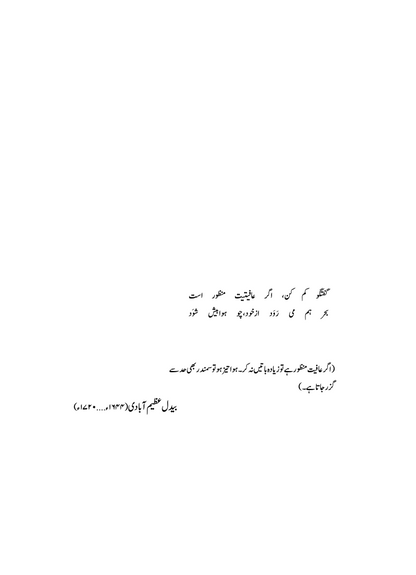 گفتگو کم کن، اگر عافیتیت منظور است
بحر ہم می رَوَد ازخود، چو ہوا بیش شَوَد
(اگر عافیت منظور ہے تو زیادہ باتیں نہ کر۔ ہوا تیز ہو تو سمندر بھی حد سے
گزر جاتا ہے۔)
بیدل عظیم آبادی (۱۶۴۴ء....۱۷۲۰ء)